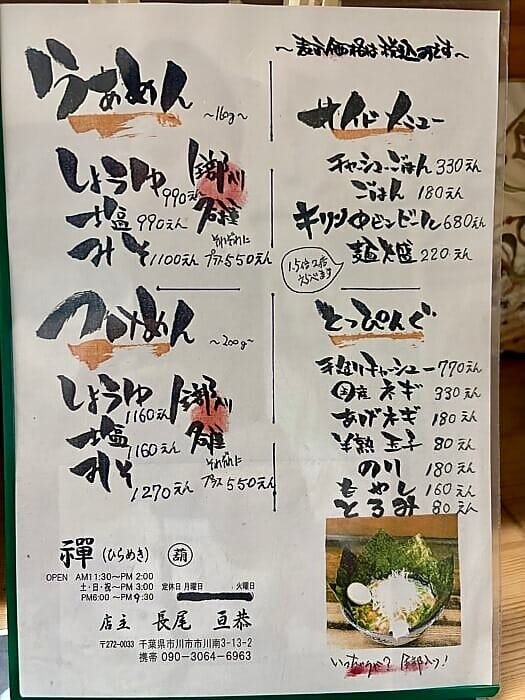 ～表示価格は税込みです～
らぁめん ～160g～
しょうゆ 990えん
塩 990えん
みそ 1100えん
全部入り
各種
それぞれに
プラス550えん
つけめん ～200g～
しょうゆ 1160えん
塩 1160えん
みそ 1270えん
全部入り
各種
それぞれに
プラス550えん
サイドメニュー
チャーシューごはん 330えん
ごはん 180えん
キリン中ビンビール 680えん
麺大盛 220えん
1.5倍 2倍
えらべます
とっぴんぐ
手造りチャーシュー 770えん
国産ネギ 330えん
あげネギ 180えん
半熟玉子 80えん
のり 180えん
もやし 160えん
とろみ 80えん
禪 (ひらめき)
OPEN AM11:30～PM 2:00
土・日・祝～PM 3:00 定休日 月曜日 火曜日
PM6:00 ～PM9:30
店主 長尾 亘恭
〒272-0033 千葉県市川市市川南3-13-2
携帯 090-3064-6963
全部入り！